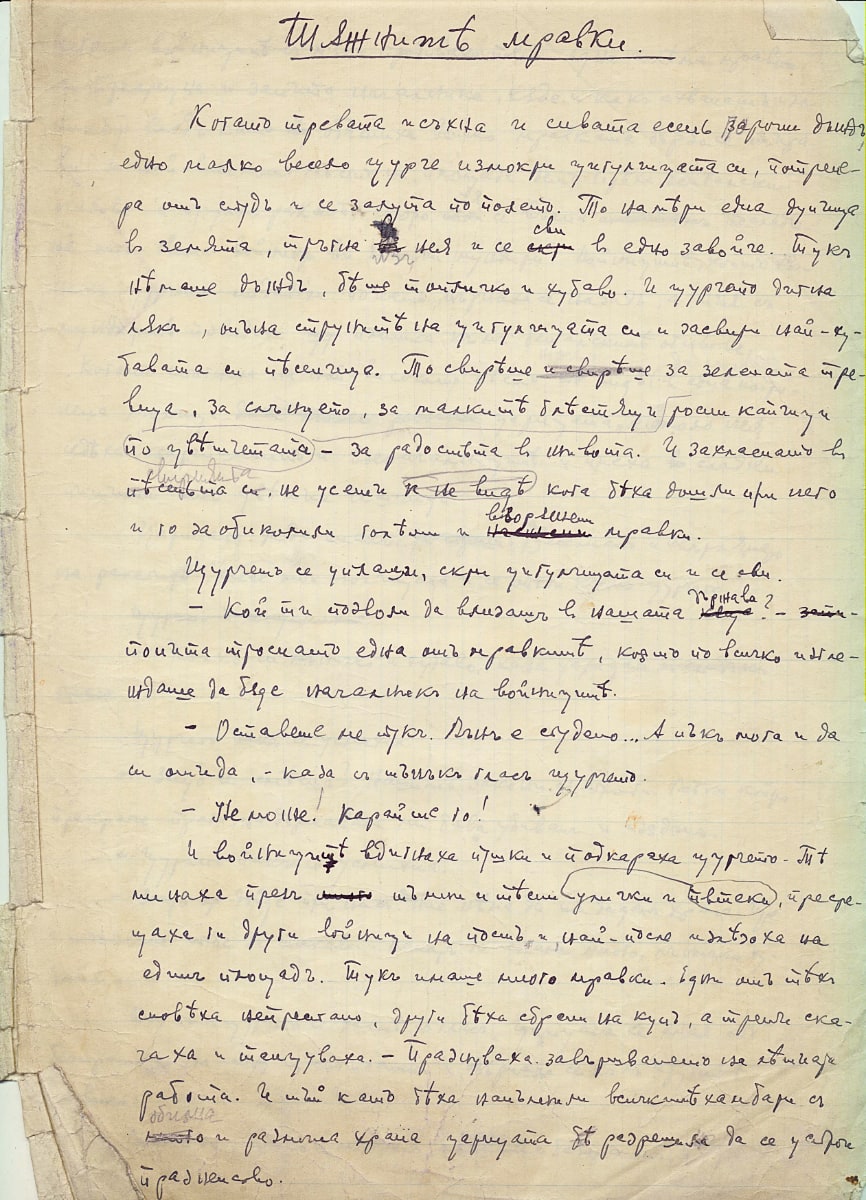 Тѫжнитѣ мравки.
Когато тревата исъхна и сивата есень зароши дъждъ,
едно малко весело щурче измокри цигулчицата си, потрепе-
ра отъ студъ и се залута по полето. То намѣри една дупчица
в земята, тръгна из нея и се сви в едно завойче. Тукъ
нѣмаше дъждъ, бѣше топличко и хубаво. И щурчето дигна
лѫкъ, опъна струнитѣ на цигулчицата си и засвири най-ху-
бавата си пѣсенчица. То свирѣше и свирѣше за зелената тре-
вица, за слънцето, за малкитѣ блѣстящи росни капчици
по цвѣтчетата – за радостьта в живота. И захласнато в
свирнята
пѣсеньта си, не усети и не видѣ кога бѣха дошли при него
и го заобиколили голѣми и въорѫжени мравки.
Щурчето се уплаши, скри цигулчицата си и се сви.
– Кой ти позволи да влизашъ в нашата държава? –
попита троснато една отъ мравкитѣ, която по всичко изгле-
ждаше да бѫде началникъ на войницитѣ.
– Оставете ме тукъ. Вънъ е студено... А пъкъ мога и да
си отида, – каза съ тънъкъ гласъ щурчето.
– Не може! Карайте го!
И войницитѣ вдигнаха пушки и подкараха щурчето. Тѣ
минаха презъ тъмни и тѣсни улички и пѫтеки, пресре-
щаха ги други войници на постъ и най-после излѣзоха на
единъ площадъ. Тукъ имаше много мравки. Едни отъ тѣхъ
сновѣха непрестано, други бѣха сбрани на купъ, а трети ска-
чаха и танцуваха. – Празнуваха завършването на лѣтната
работа. И тъй като бѣха напълнили всичкитѣ хамбари съ
обилна
и разнъна храна царицата бѣ разрешила да се устрои
празненство.